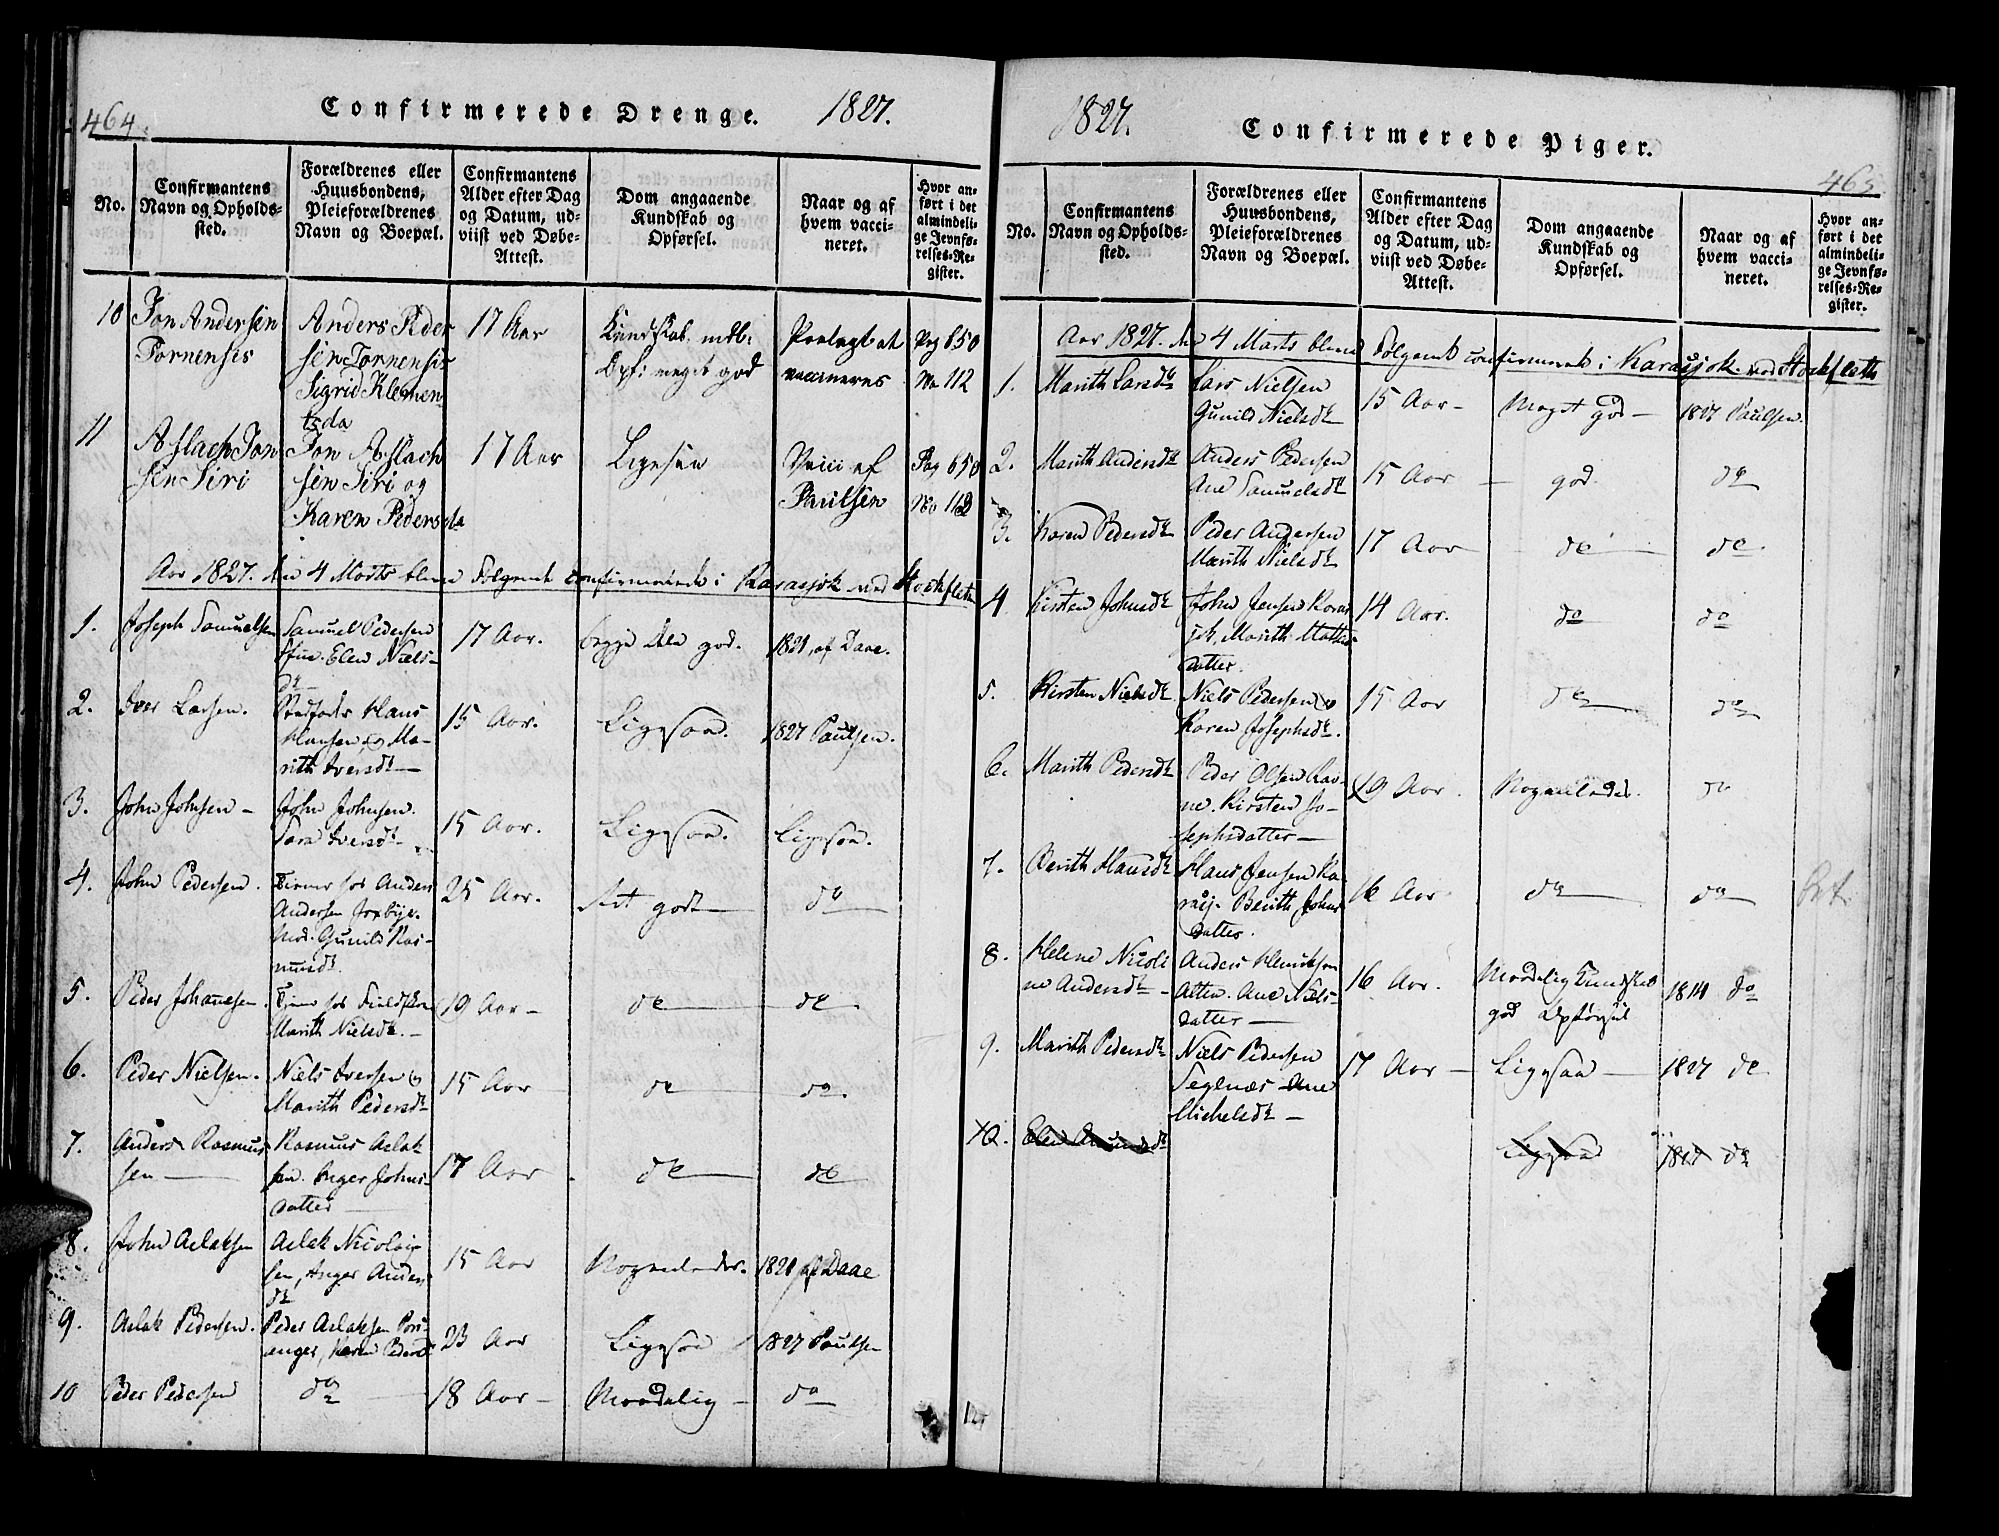 464.
Confirmerede Drenge. 1827.
No.
Confirmantens
Navn og Opholds-
sted.
Forældrenes eller
Huusbondens,
Pleieforældrenes
Navn og Boepæl.
Confirmantens
Alder efter Dag
og Datum, ud-
viist ved Døbe-
Attest.
Dom angaaende
Kundskab og
Opførsel.
Naar og af
hvem vacci-
neret.
Hvor an-
ført i det
almindeli-
ge Jevnfø-
relses-Re-
gister.
10 Jon Andersen
Tornensis
Anders Peder
sen Tornensis
Sigrid Klemen
tsda
17 Aar
Kundskab. mdb:
Opf: meget god
Paalagt at
vaccineres
Pag 650
No 112
11 Aslach Jon
sen Siri
Jon Aslach
sen Siri og
Karen Pedersda
17 Aar
Ligesaa
Vacci af
Paulsen
Pag 650
No 112
Aar 1827. den 4 Marts bleve Følgende confirmerede i Karasjok ved Stockfleth
1. Joseph Samuelsen
Samuel Pedersen
Elen Niels-
dr
17 Aar.
begge Dele god.
1821, af Daae.
2. Iver Larsen.
Stedfader Hans
Hansen og Ma-
rith Iversdr
15 Aar.
Ligesaa.
1827 Paulsen.
3. John Johnsen -
John Johnsen.
Sara Iversdr
15 Aar.
Ligesaa.
Ligesaa.
4. John Pedersen.
Tiener hos Anders
Andersen
Mod. Gunild Ras-
musdr.
25 Aar.
godt
do
5. Peder Johannesen.
Tiener hos
Marith Nielsdr. -
19 Aar -
do
do
6. Peder Nielsen.
Niels Iversen og
Marith Pedersdr
15 Aar
do
do.
7. Anders Rasmus
sen
Rasmus Aslak-
sen. Inger Johns-
datter
17 Aar
do
do
8. John Aslaksen
Aslak Nicolai-
sen, Inger Anders
dr
15 Aar
Nogenledes.
1821 af Daae
9. Aslak Pedersen.
Peder Aslaksen Pors-
anger, Karen Pedersd
23 Aar
Ligesaa
1827 Paulsen
10 Peder Pedersen
do
18 Aar -
Maadelig -
do
1827.
Confirmerede Piger.
465
No.
Confirmantens
Navn og Opholds-
sted.
Forældrenes eller
Huusbondens,
Pleieforældrenes
Navn og Boepæl.
Confirmantens
Alder efter Dag
og Datum, ud-
viist ved Døbe-
Attest.
Dom angaaende
Kundskab og
Opførsel.
Naar og af
hvem vacci-
neret.
Hvor an-
ført i det
almindeli-
ge Jevnfø-
relses-Re-
gister.
Aar 1827. den 4 Marts bleve Følgende confirmerede i Karasjok ved Stockfleth
1. Marith Larsdr
Lars Nielsen
Gunild Nielsdr
15 Aar -
Meget god -
1827 Paulsen.
2. Marith Andersdr
Anders Pedersen
Ane Samuelsdr
15 Aar
god.
do
3. Karen Pedersdr
Peder Andersen
Marith Nielsdr
17 Aar
do
do.
4 Kirsten Johnsdr
John Jensen Karas
jok, Marith Mathis-
datter.
14 Aar.
do
do
5. Kirsten Nielsdr
Niels Pedersen og
Karen Josephsdr.
15 Aar
do
do
6. Marith Pedersdr
Peder Olsen Rav-
na. Kirsten Jo-
sephsdatter
19 Aar.
Nogenledes.
do
7. Berith Hansdr
Hans Jensen Ka-
rasj. Berith Johns
datter.
16 Aar
do
do
8. Helene Nicoli
ne Andersdr
Anders Henriksen
Alten. Ane Niels-
datter
16 Aar.
Maadelig Kundskab
god Opførsel
do
9. Marith Pedersdr
Niels Pedersen
Seglnæs Ane
Michelsdr -
17 Aar -
Ligesaa
1827 do
10. Elen Amundsdr
Ligesaa
1827 do